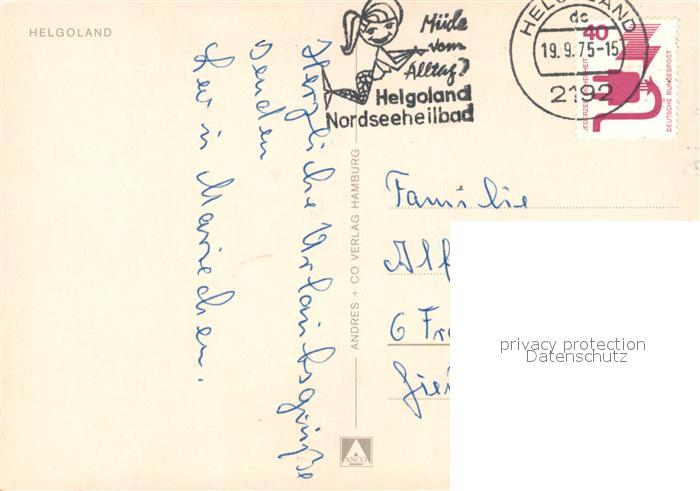 HELGOLAND
Müde
vom
Alltag?
Helgoland
Nordseeheilbad
HELGOLAND
dc
19.9.75-15
2192
40
JEDERZEIT SICHERHEIT
DEUTSCHE BUNDESPOST
Herzliche Urlaubsgrüße
senden
in Mariechen.
ANDRES + CO VERLAG HAMBURG
ANCO
Familie
Alf
6 Fr
privacy protection
Datenschutz